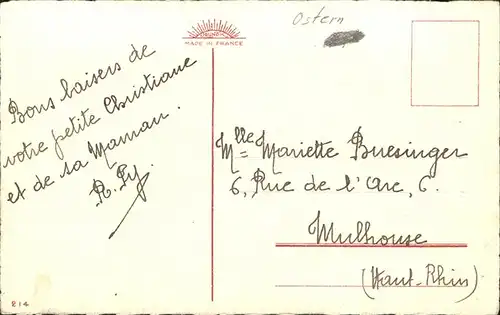 Ostern
MADE IN FRANCE
Bons baisers de
votre petite Christiane
et de sa Maman.
Mlle Mariette Buesinger
6, Rue de l'Arc, 6.
Mulhouse
(Haut-Rhin)
214